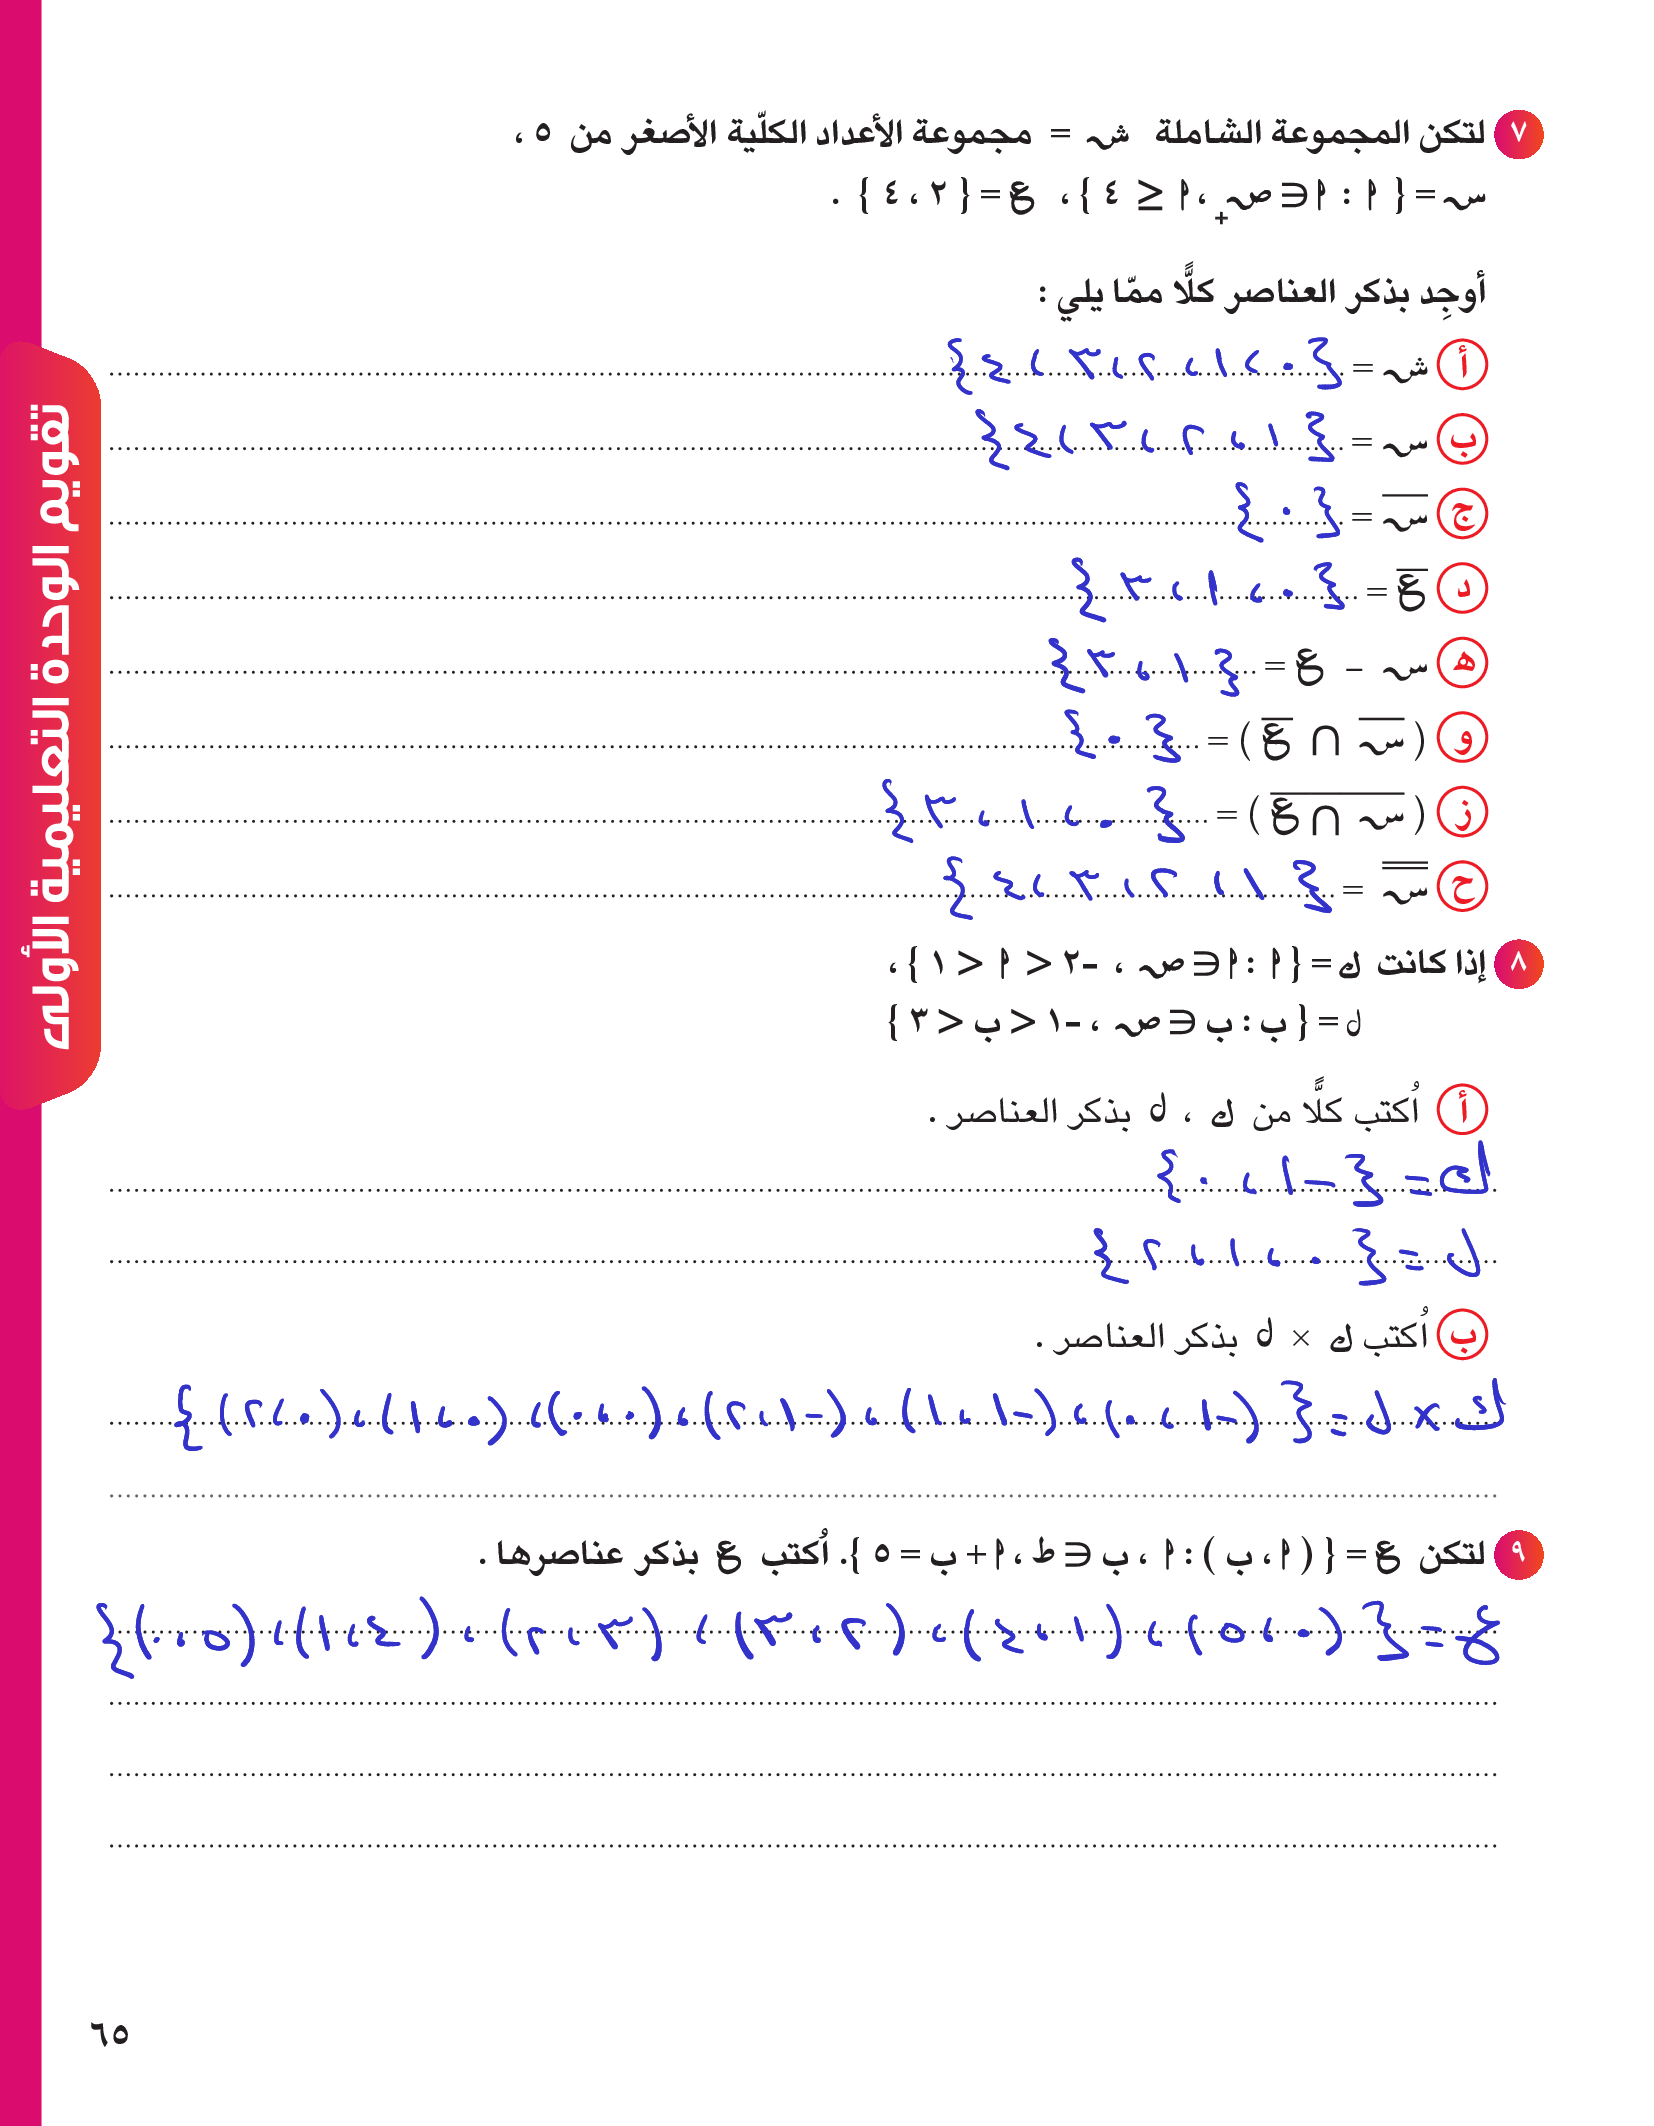 ٧ لتكن المجموعة الشاملة ش = مجموعة الأعداد الكلّية الأصغر من ٥ ،
س = { ا : ا ∈ ص+ ، ا ≤ ٤ } ، ع = { ٢ ، ٤ } .
أوجِد بذكر العناصر كلًّا ممّا يلي :
أ ش = { ٠ ، ١ ، ٢ ، ٣ ، ٤ }
ب س = { ١ ، ٢ ، ٣ ، ٤ }
ج س̅ = { ٠ }
د ع̅ = { ٠ ، ١ ، ٣ }
ه س – ع = { ١ ، ٣ }
و ( س̅ ∩ ع̅ ) = { ٠ }
ز ( س ∩ ع )̅ = { ٠ ، ١ ، ٣ }
ح س̿ = { ١ ، ٢ ، ٣ ، ٤ }
٨ إذا كانت ك = { ا : ا ∈ ص ، -٢ < ا < ١ } ،
ل = { ب : ب ∈ ص ، -١ < ب < ٣ }
أ اُكتب كلًّا من ك ، ل بذكر العناصر .
ك = { -١ ، ٠ }
ل = { ٠ ، ١ ، ٢ }
ب اُكتب ك × ل بذكر العناصر .
ك × ل = { (-١ ، ٠) ، (-١ ، ١) ، (-١ ، ٢) ، (٠ ، ٠) ، (٠ ، ١) ، (٠ ، ٢) }
٩ لتكن ع = { ( ا ، ب ) : ا ، ب ∈ ط ، ا + ب = ٥ }. اُكتب ع بذكر عناصرها .
ع = { (٠ ، ٥) ، (١ ، ٤) ، (٢ ، ٣) ، (٣ ، ٢) ، (٤ ، ١) ، (٥ ، ٠) }
تقويم الوحدة التعليمية الأولى
٦٥